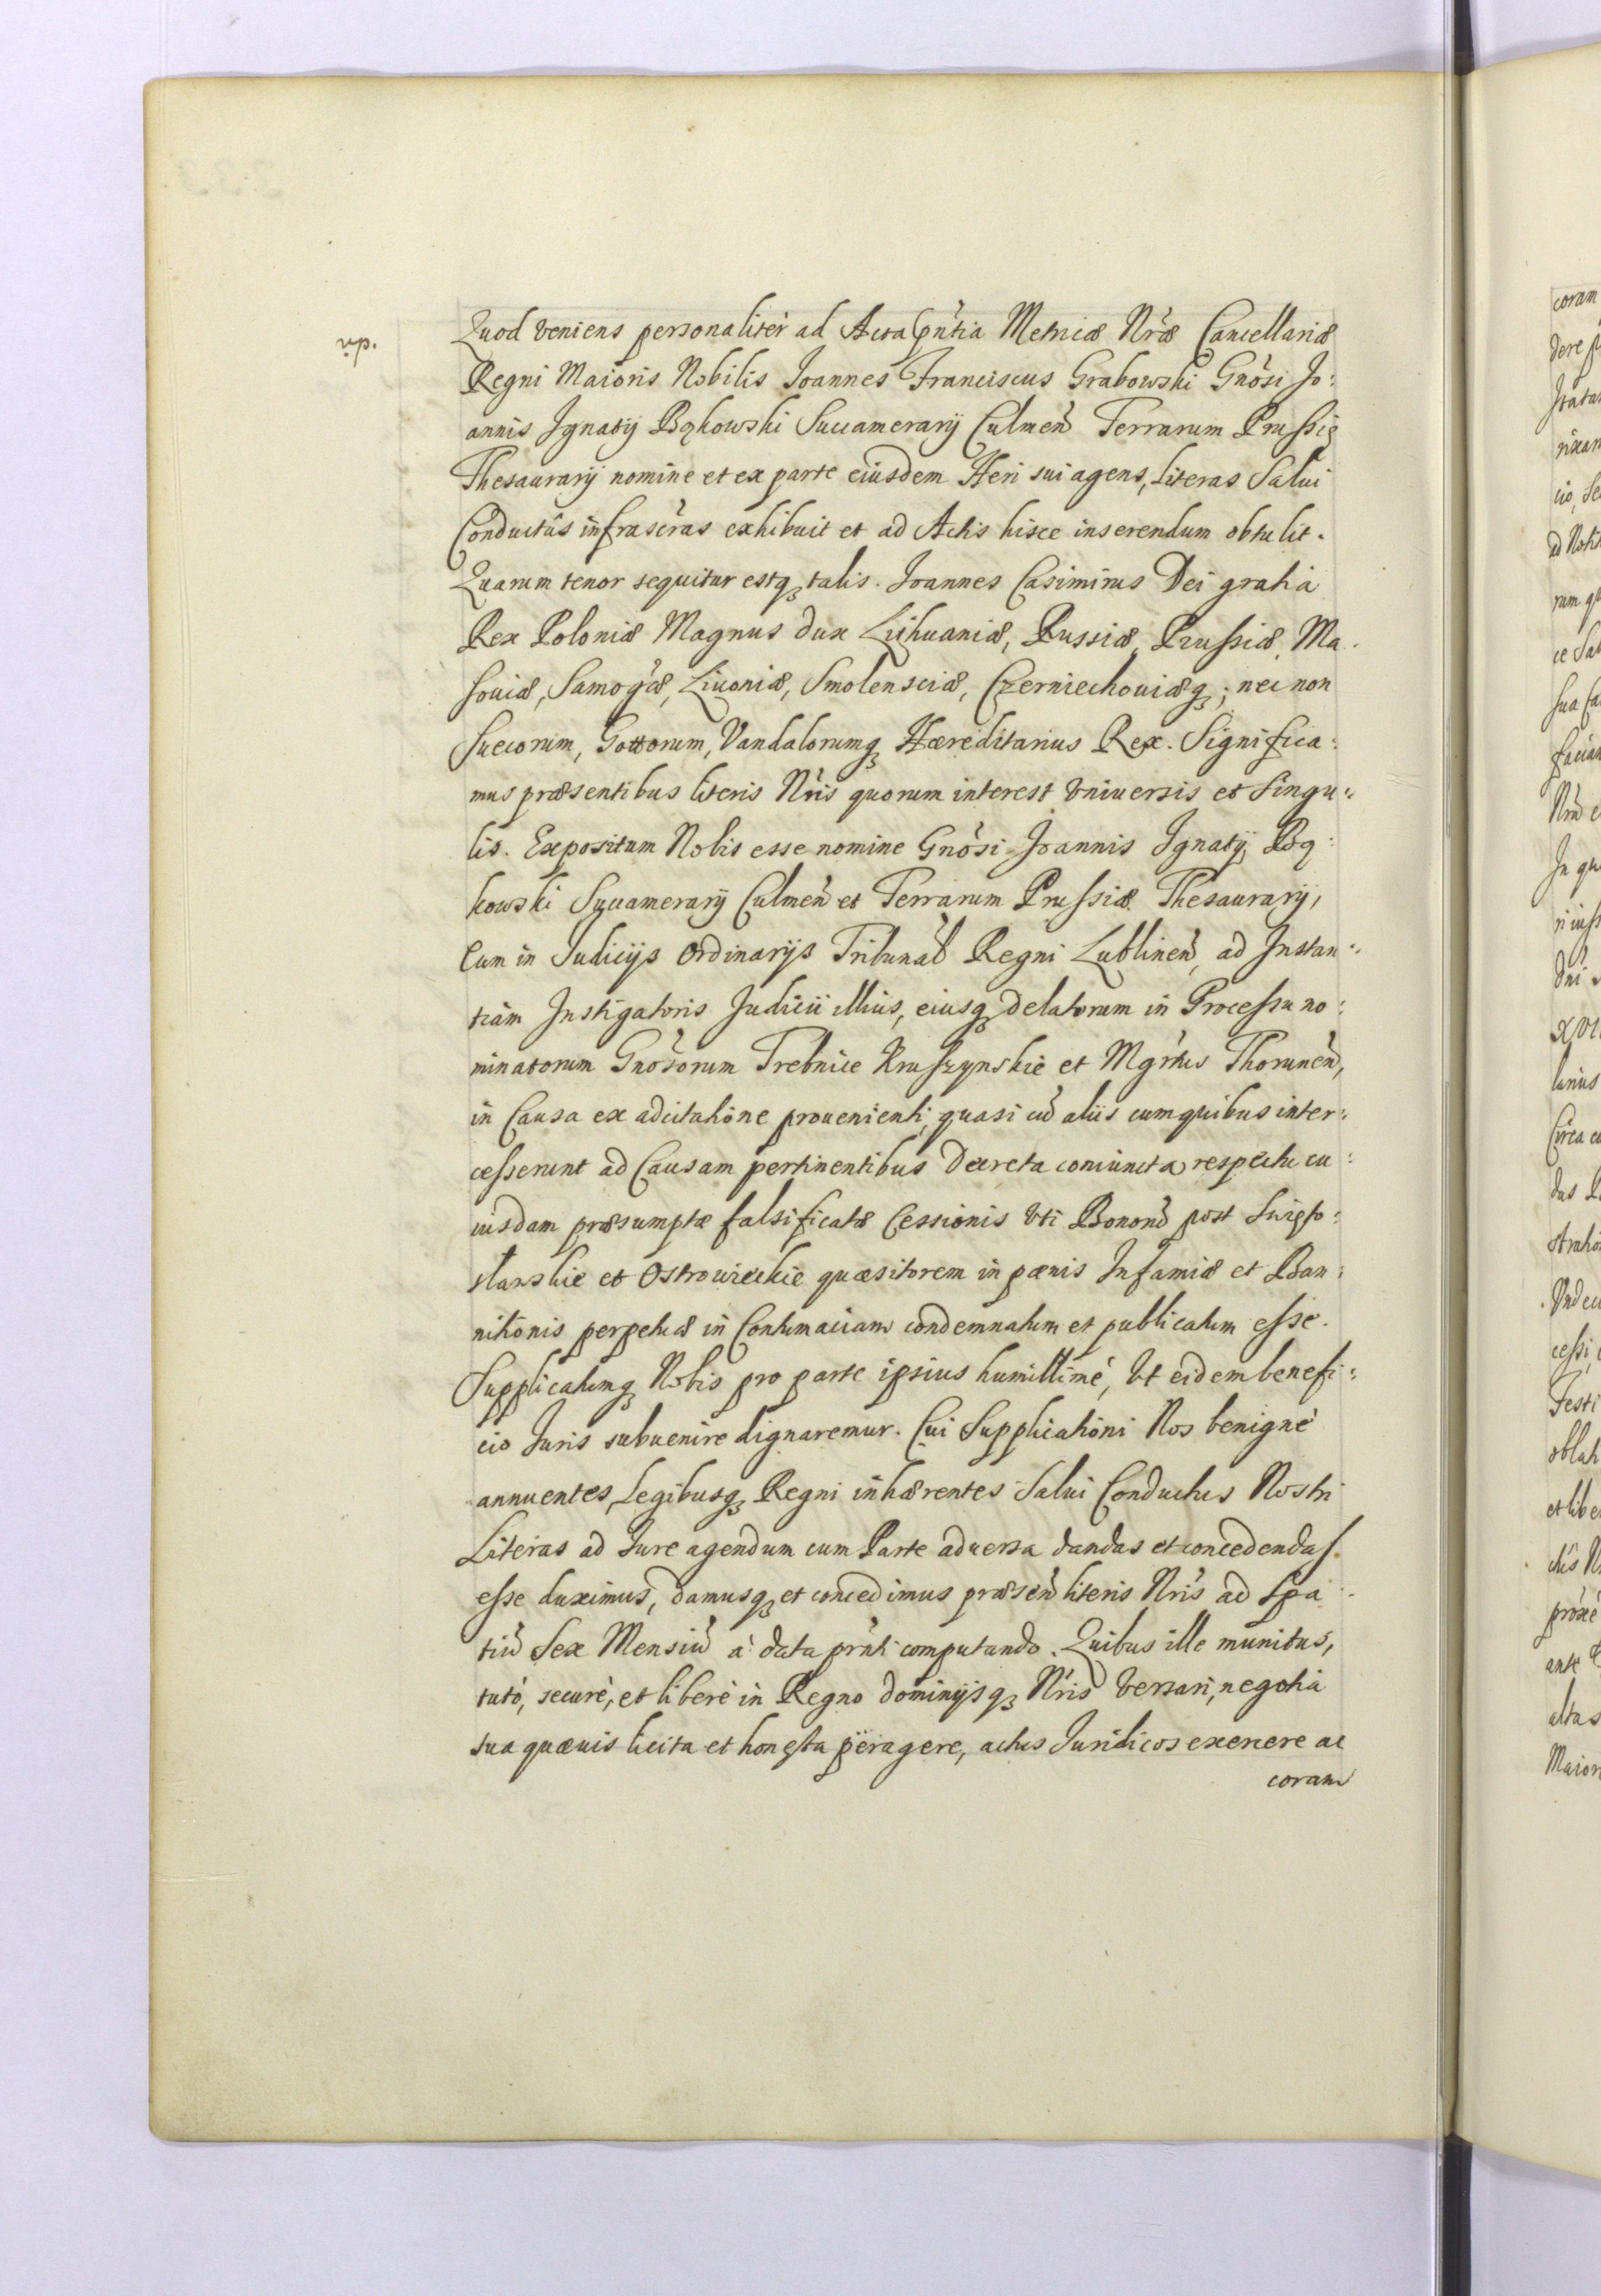 Quod veniens personalitèr ad Acta pñtia Metricæ Nr̃æ Cancellariæ
Regni Maioris Nobilis Joannes Franciscus Grabowski Gnõsi Jo:
annis Ignatÿ Bąkowski Succamerarÿ Culmeñ Terrarum Prussię
Thesaurarÿ nomine et ex parte eiusdem Heri sui agens, Literas Salui
Conductûs infrascr̃as exhibuit et ad Actis hisce inserendum obtulit.
Quarum tenor sequitur estq́ talis. Joannes Casimirus Dei gratia
Rex Poloniæ Magnus dux Lithuaniæ, Russiæ, Prussiæ, Ma
souiæ, Samog̃æ, Liuoniæ, Smolensciæ, Czerniechouiæq́; nec non
Suecorum, Gottorum, Vandalorumq́ Hæreditarius Rex. Significa:
mus præsentibus literis Nr̃is quorum interest vniuersis et singu:
lis. Expositum Nobis esse nomine Gnõsi Joannis Ignatÿ Bą:
kowski Succamerarÿ Culmeñ et Terrarum Prussiæ Thesaurarÿ,
Cum in Judicijs Ordinarijs Tribunal̃ Regni Lublineñ, ad Instan:
tiam Instigatoris Judicii illius, eiusq́ delatorum in Processu no:
minatorum Gnõsorum Trebnice Kruszynskie et Mgr̃tus Thoruneñ,
in Causa ex adcitatione prouenienti, quasi cũ aliis cum quibus inter:
cesserunt ad Causam pertinentibus decreta coniuncta, respectu cu:
iusdam præsumptæ falsificatæ Cessionis vti Bonorũ post Swięto:
slawskie et Ostrowieckie quæsitorem in pœnis Infamiæ et Ban:
nitionis perpetuæ in Contumaciam condemnatum et publicatum esse.
Supplicatumq́ Nobis pro parte ipsius humillimè, Vt eidem benefi:
cio Juris subuenire dignaremur. Cui Supplicationi Nos benignè
annuentes, Legibusq́ Regni inhærentes Salui Conductus Nostri
Literas ad Jure agendum cum Parte aduersa dandas et concedendas
esse duximus, damusq́ et concedimus præseñ literis Nr̃is ad spa
tiũ Sex Mensiũ à data pr̃nti computando. Quibus ille munitus,
tutò, securè, et liberè in Regno dominijsq́ Nr̃is versari, negotia
sua quæuis licita et honesta peragere, actus Juridicos exercere ac
coram